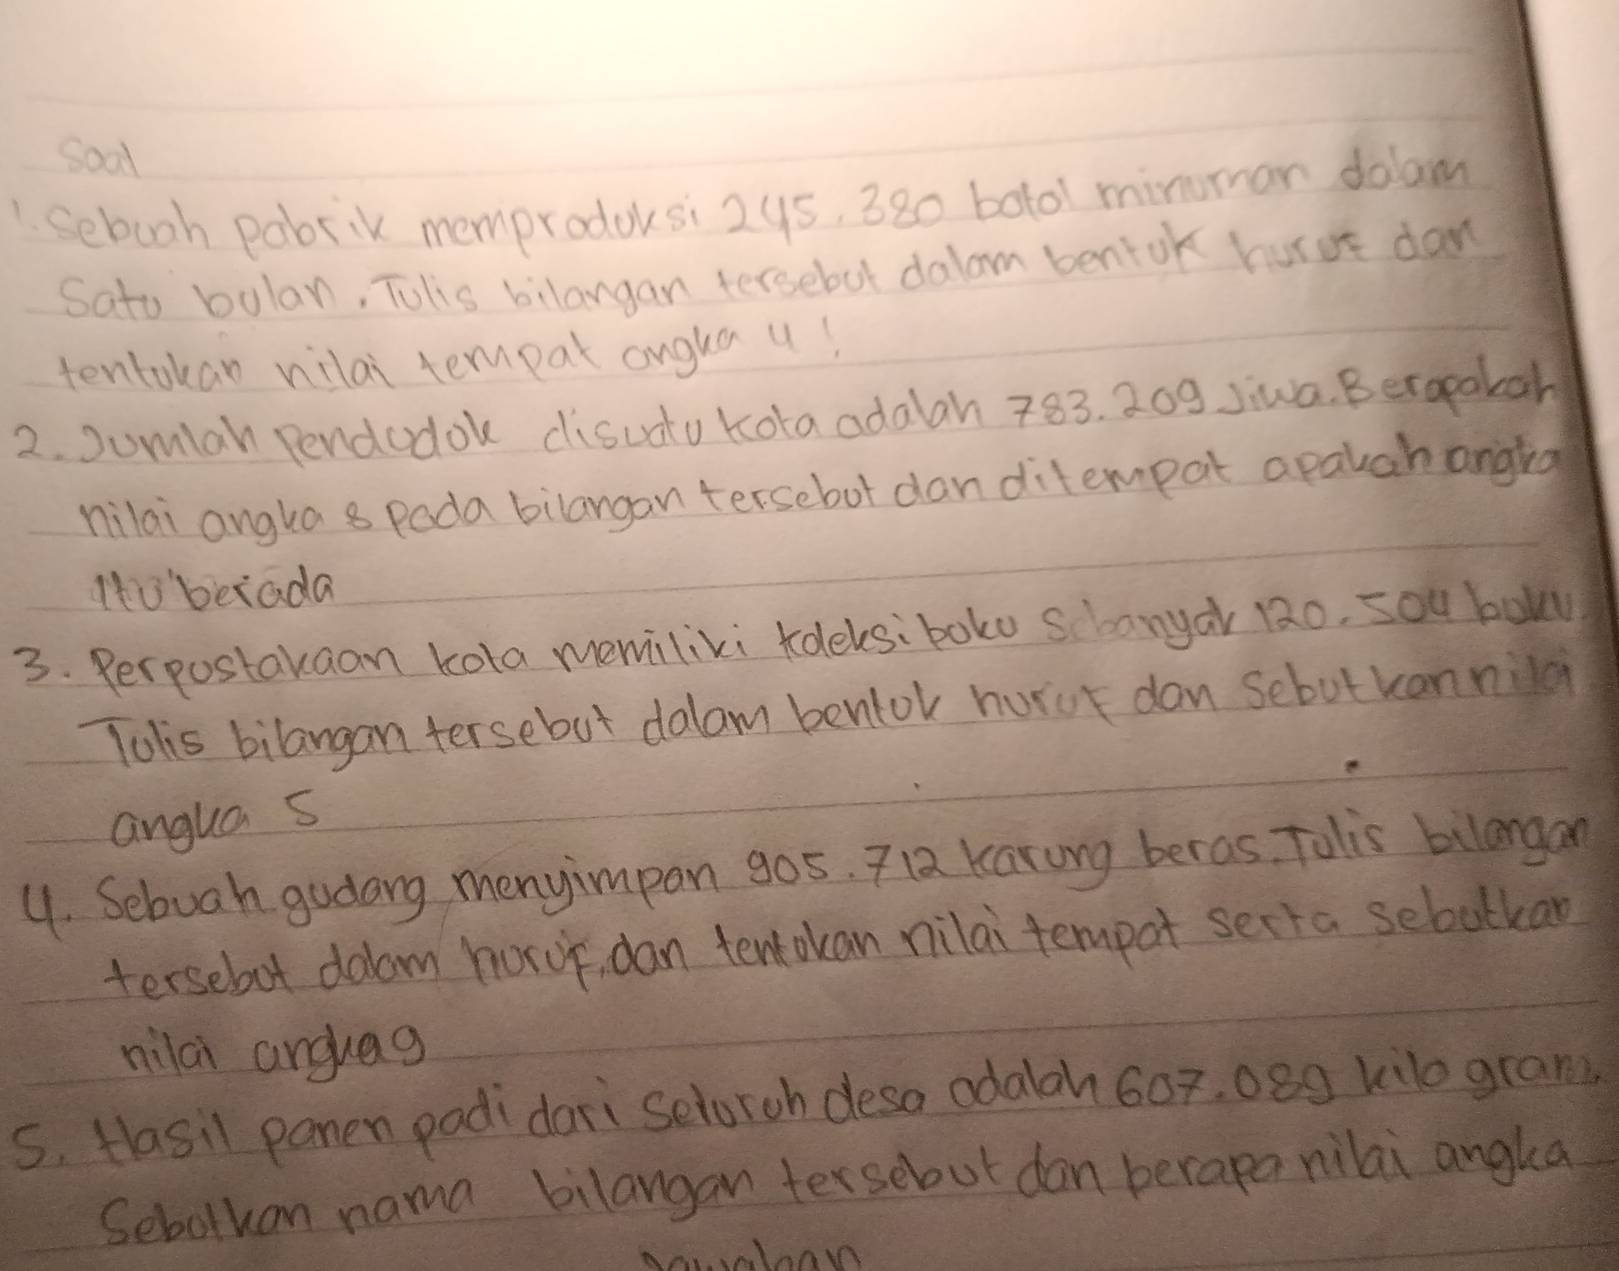 Soal
1. Sebuah pabrik memproduksi 245.380 botol minuman dalam
Satu bulan. Tulis bilangan tersebut dalam bentuk huruf dan
tentukan nilai tempat angka 4!
2. Jumlah Penduduk disuatu kota adalah 783.209 Jiwa. Berapakah
nilai angka 8 pada bilangan tersebut dan ditempat apakah angka
itu berada
3. Perpustakaan kota memiliki koleksi buku sebanyak 120.504 buku
Tulis bilangan tersebut dalam bentuk huruf dan Sebutkan nilai
angka 5
4. Sebuah gudang menyimpan 905.712 karung beras. Tulis bilangan
tersebut dalam huruf, dan tentukan nilai tempat serta sebutkan
nilai angka 9
5. Hasil panen padi dari seluruh desa adalah 607.089 kilo gram.
Sebutkan nama bilangan tersebut dan berapa nilai angka
Jawaban